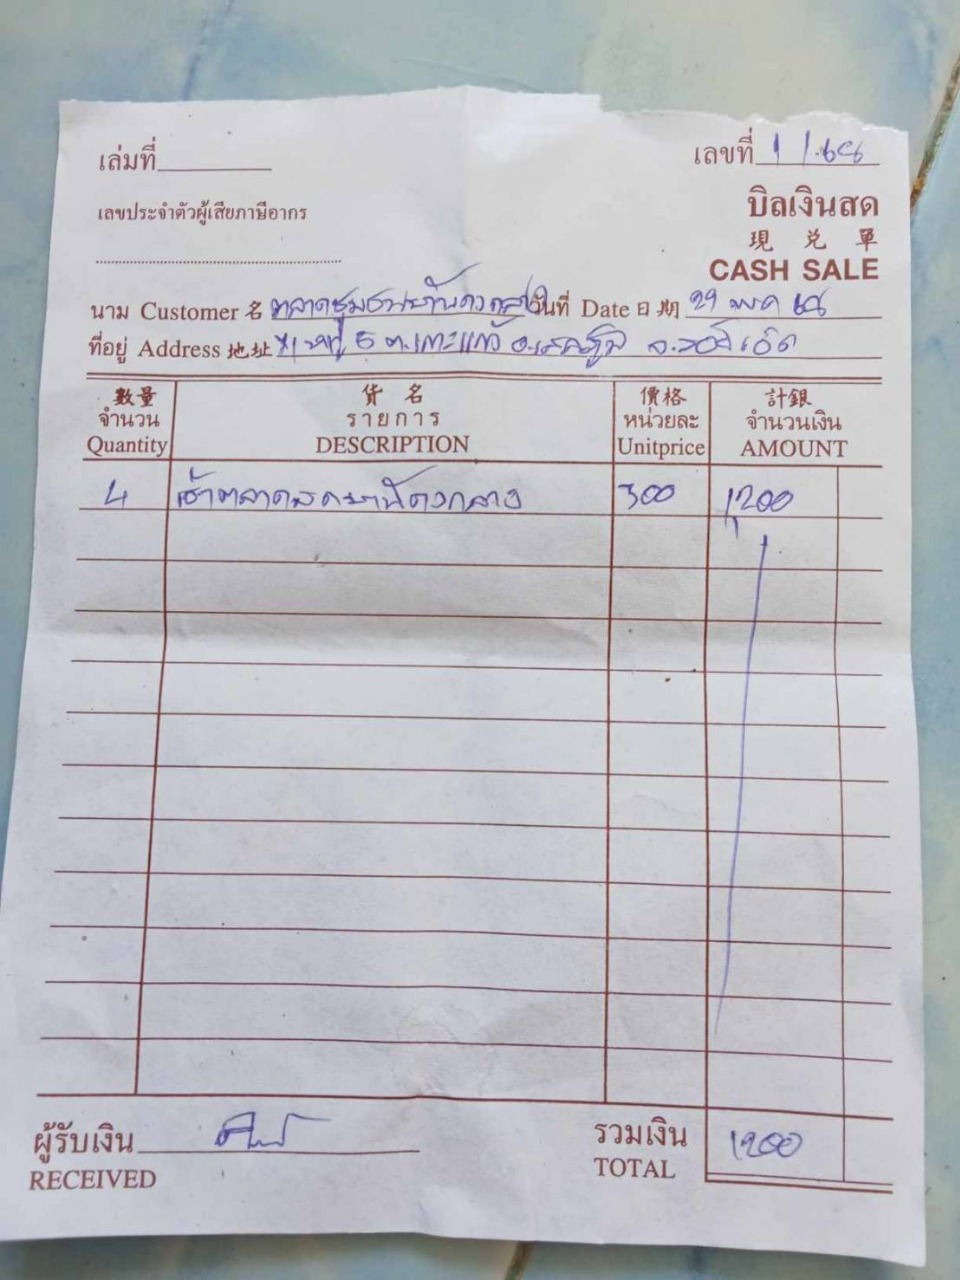 เล่มที่ เลขที่ 1/68
เลขประจำตัวผู้เสียภาษีอากร
บิลเงินสด
現 兌 單
CASH SALE
นาม Customer 名 ตลาดชุมชนบ้านดงกลาง วันที่ Date 日期 29 พค 68
ที่อยู่ Address 地址 หมู่ 5 ต.เกาะแก้ว อ.เสลภูมิ จ.ร้อยเอ็ด
數量 貨名 價格 計銀
จำนวน รายการ หน่วยละ จำนวนเงิน
Quantity DESCRIPTION Unitprice AMOUNT
4 เช่าตลาดสดบ้านดงกลาง 300 1,200
ผู้รับเงิน รวมเงิน 1200
RECEIVED TOTAL